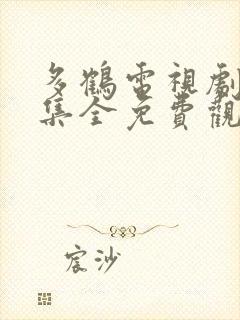 多鶴電視劇
集全免費觀
宸沙